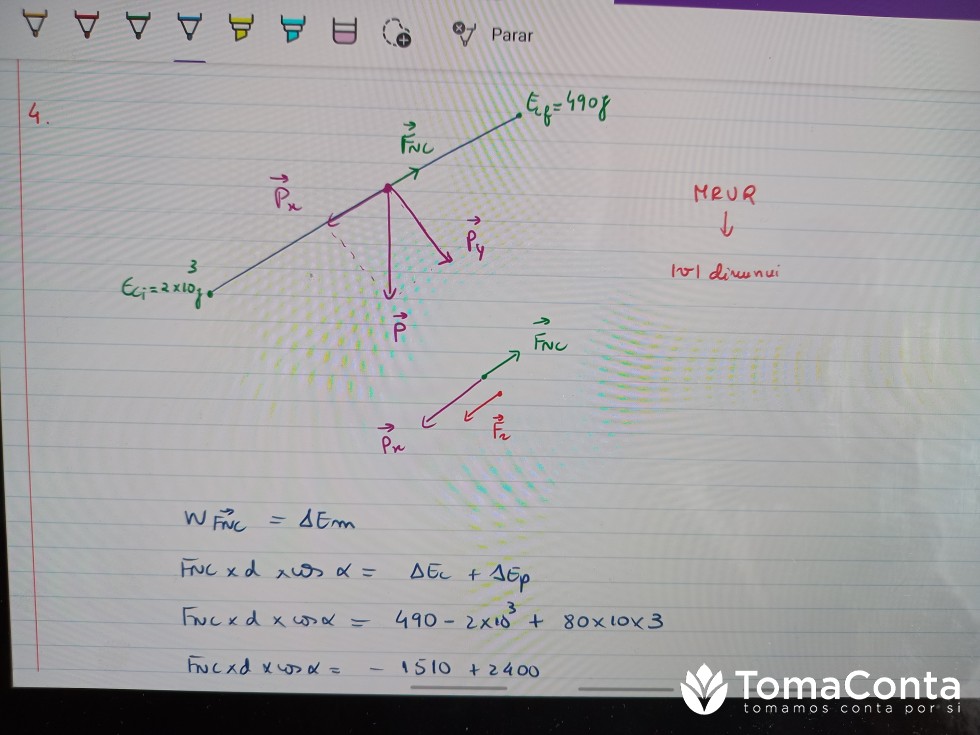 Parar
4.
Ecf = 490J
FNC
Px
MRUR
Py
↓
|v| diminui
Eci = 2×10³J
P
FNC
Fr
Px
W FNC = ΔEm
FNC × d × cos α = ΔEc + ΔEp
FNC × d × cos α = 490 - 2×10³ + 80×10×3
FNC × d × cos α = - 1510 + 2400
TomaConta
tomamos conta por si